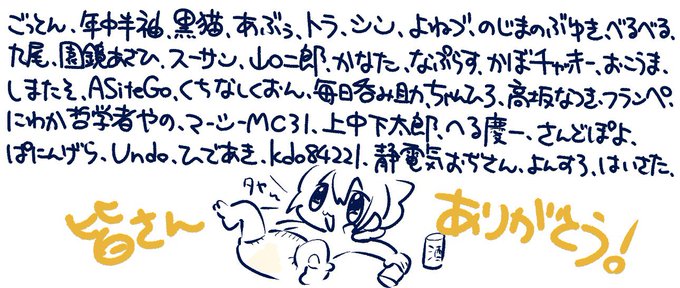 ごってん、年中半袖、黒猫、あぶぅ、トラ、シン、よねづ、のじまのぶゆき、べるべる、
九尾、園鏡あさひ、スーサン、山口二郎、かなた、なぷらす、かぼチャッキー、おこうま、
しまたそ、ASiteGo、くちなしくおん、毎日呑み助、ちゃんひろ、高坂なつき、フランペ、
にわか哲学者やの、マーシーMC31、上中下太郎、へる慶一、さんどぽよ、
ぱにんげら、Undo、ひであき、kdo84221、静電気おぢさん、よんすろ、はいさた、
タやー
皆さん
酒
ありがとう!